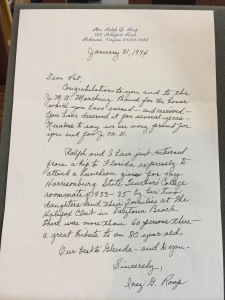 Mrs. Ralph G. Roop
Richmond, Virginia
January 31, 1994
Dear Pat,
Congratulations to you and to the
J. M. U. Marching Band for the honor
which you have earned - and received -
You have deserved it for several years -
Needless to say we are very proud for
you and for J. M. U.
Ralph and I have just returned
from a trip to Florida expressly to
attend a luncheon given for my
Harrisonburg State Teachers College
roommate (1933-35) by her two
daughters and their families at the
Halifax Club in Daytona Beach.
There were more than 60 persons there -
a great tribute to an 80 year old.
Our best to Glenda - and to you -
Sincerely,
Inez G. Roop